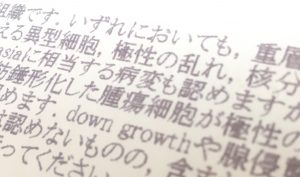 組織です. いずれにおいても, 重層
える異型細胞, 極性の乱れ, 核分
asiaに相当する病変も認めますが
紡錘形化した腫瘍細胞が極性の
めます. down growthや腺侵
認めないものの, 含ま
ってください